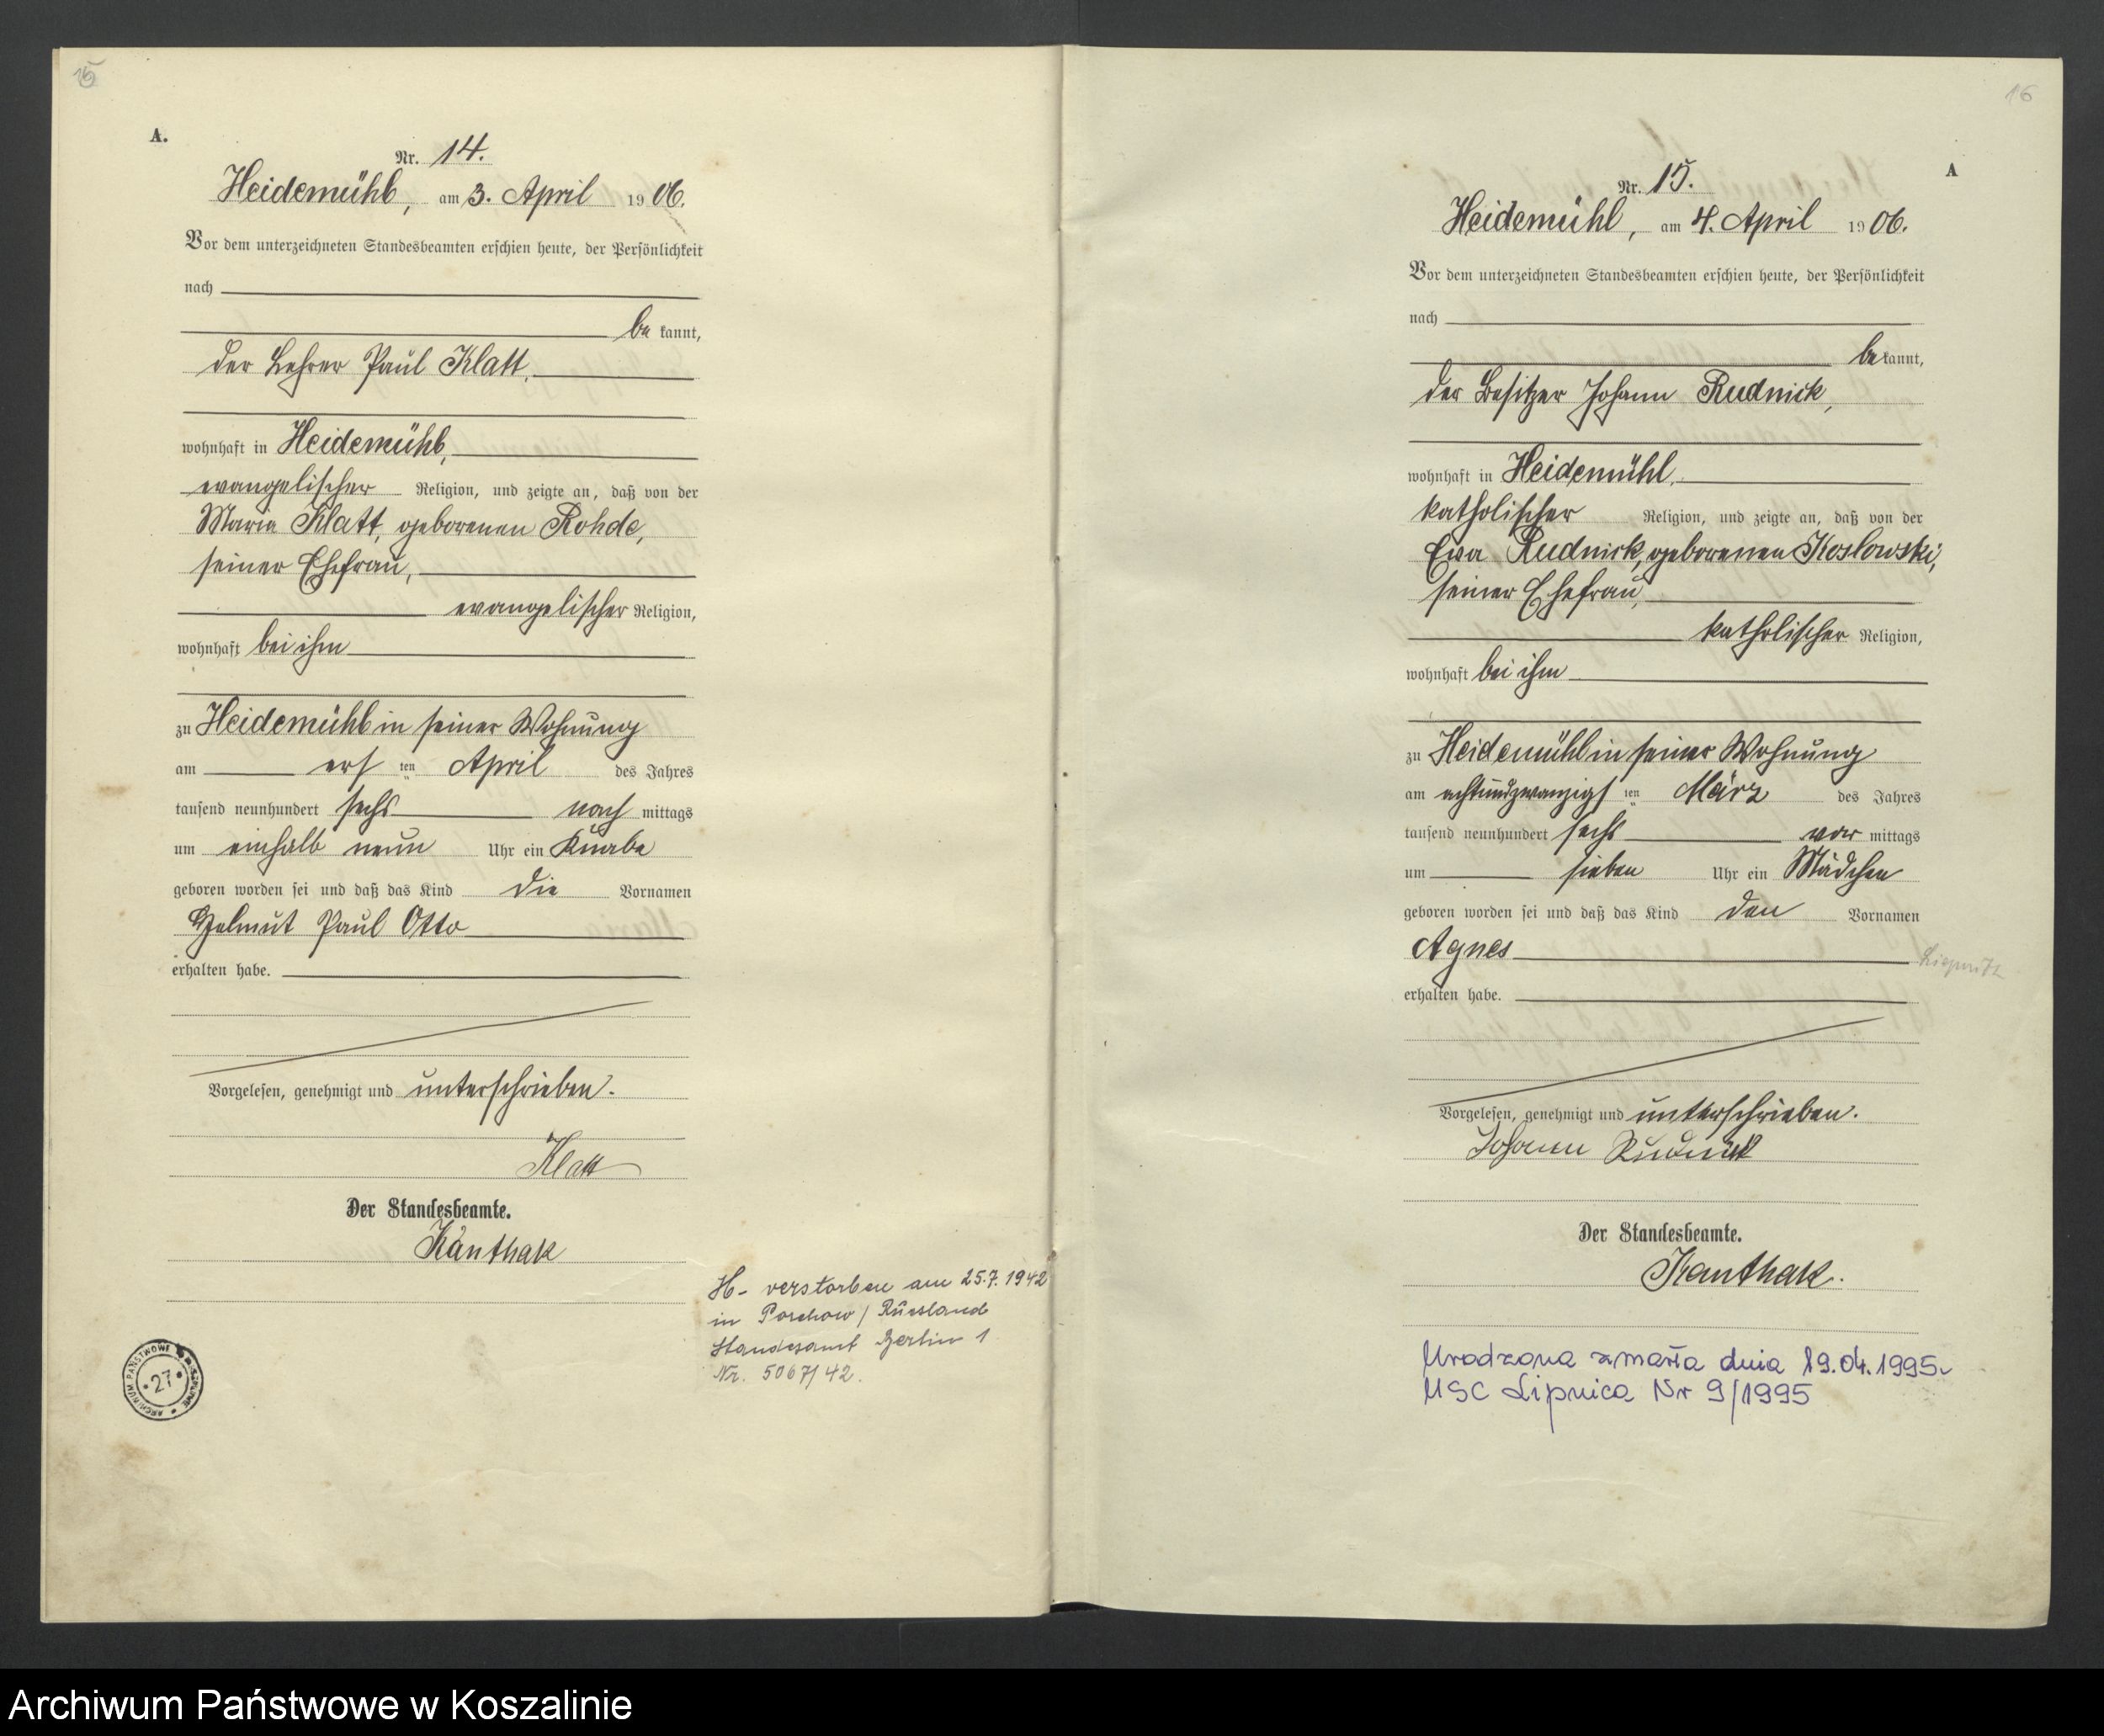 15
A.
Nr. 14.
Heidemühl, am 3. April 1906.
Vor dem unterzeichneten Standesbeamten erschien heute, der Persönlichkeit
nach
be kannt,
der Lehrer Paul Klatt,
wohnhaft in Heidemühl,
evangelischer Religion, und zeigte an, daß von der
Maria Klatt, geborenen Rohde,
seiner Ehefrau,
evangelischer Religion,
wohnhaft bei ihm
zu Heidemühl in seiner Wohnung
am erst ten April des Jahres
tausend neunhundert sechs nach mittags
um einhalb neun Uhr ein Knabe
geboren worden sei und daß das Kind die Vornamen
Helmut Paul Otto
erhalten habe.
Vorgelesen, genehmigt und unterschrieben.
Klatt
Der Standesbeamte.
Kanthak
H- verstorben am 25.7.1942
in Porchow / Russland
Standesamt Berlin 1
Nr. 5067/42.
ARCHIWUM PAŃSTWOWE
27
16
A
Nr. 15.
Heidemühl, am 4. April 1906.
Vor dem unterzeichneten Standesbeamten erschien heute, der Persönlichkeit
nach
be kannt,
der Besitzer Johann Rudnick,
wohnhaft in Heidemühl,
katholischer Religion, und zeigte an, daß von der
Eva Rudnick, geborenen Koslowski,
seiner Ehefrau,
katholischer Religion,
wohnhaft bei ihm
zu Heidemühl in seiner Wohnung
am achtundzwanzigs ten März des Jahres
tausend neunhundert sechs vor mittags
um sieben Uhr ein Mädchen
geboren worden sei und daß das Kind den Vornamen
Agnes
erhalten habe.
Vorgelesen, genehmigt und unterschrieben.
Johann Rudnick
Der Standesbeamte.
Kanthak.
Urodzona zmarła dnia 19.04.1995r
USC Lipnica Nr 9/1995
Archiwum Państwowe w Koszalinie